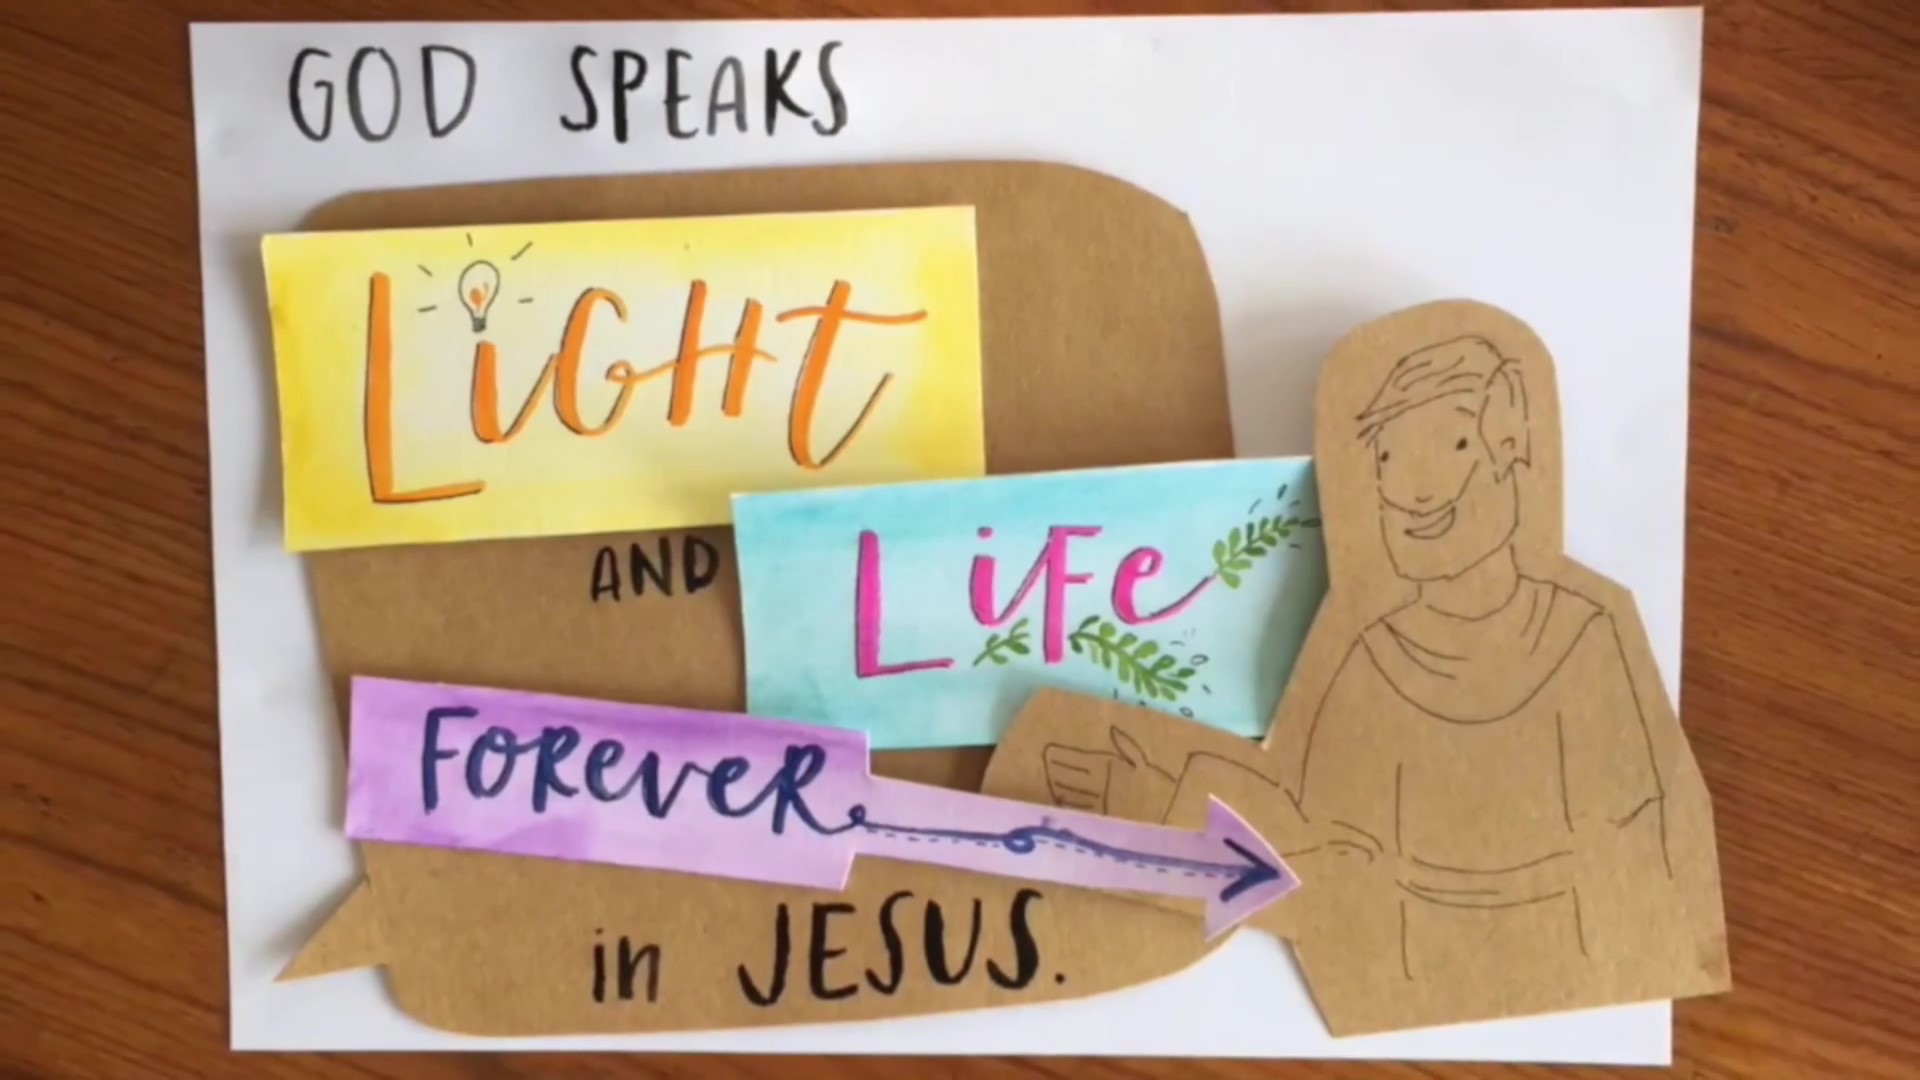 GOD SPEAKS
LiGHt
AND
LiFe
FOReveR
in JESUS.